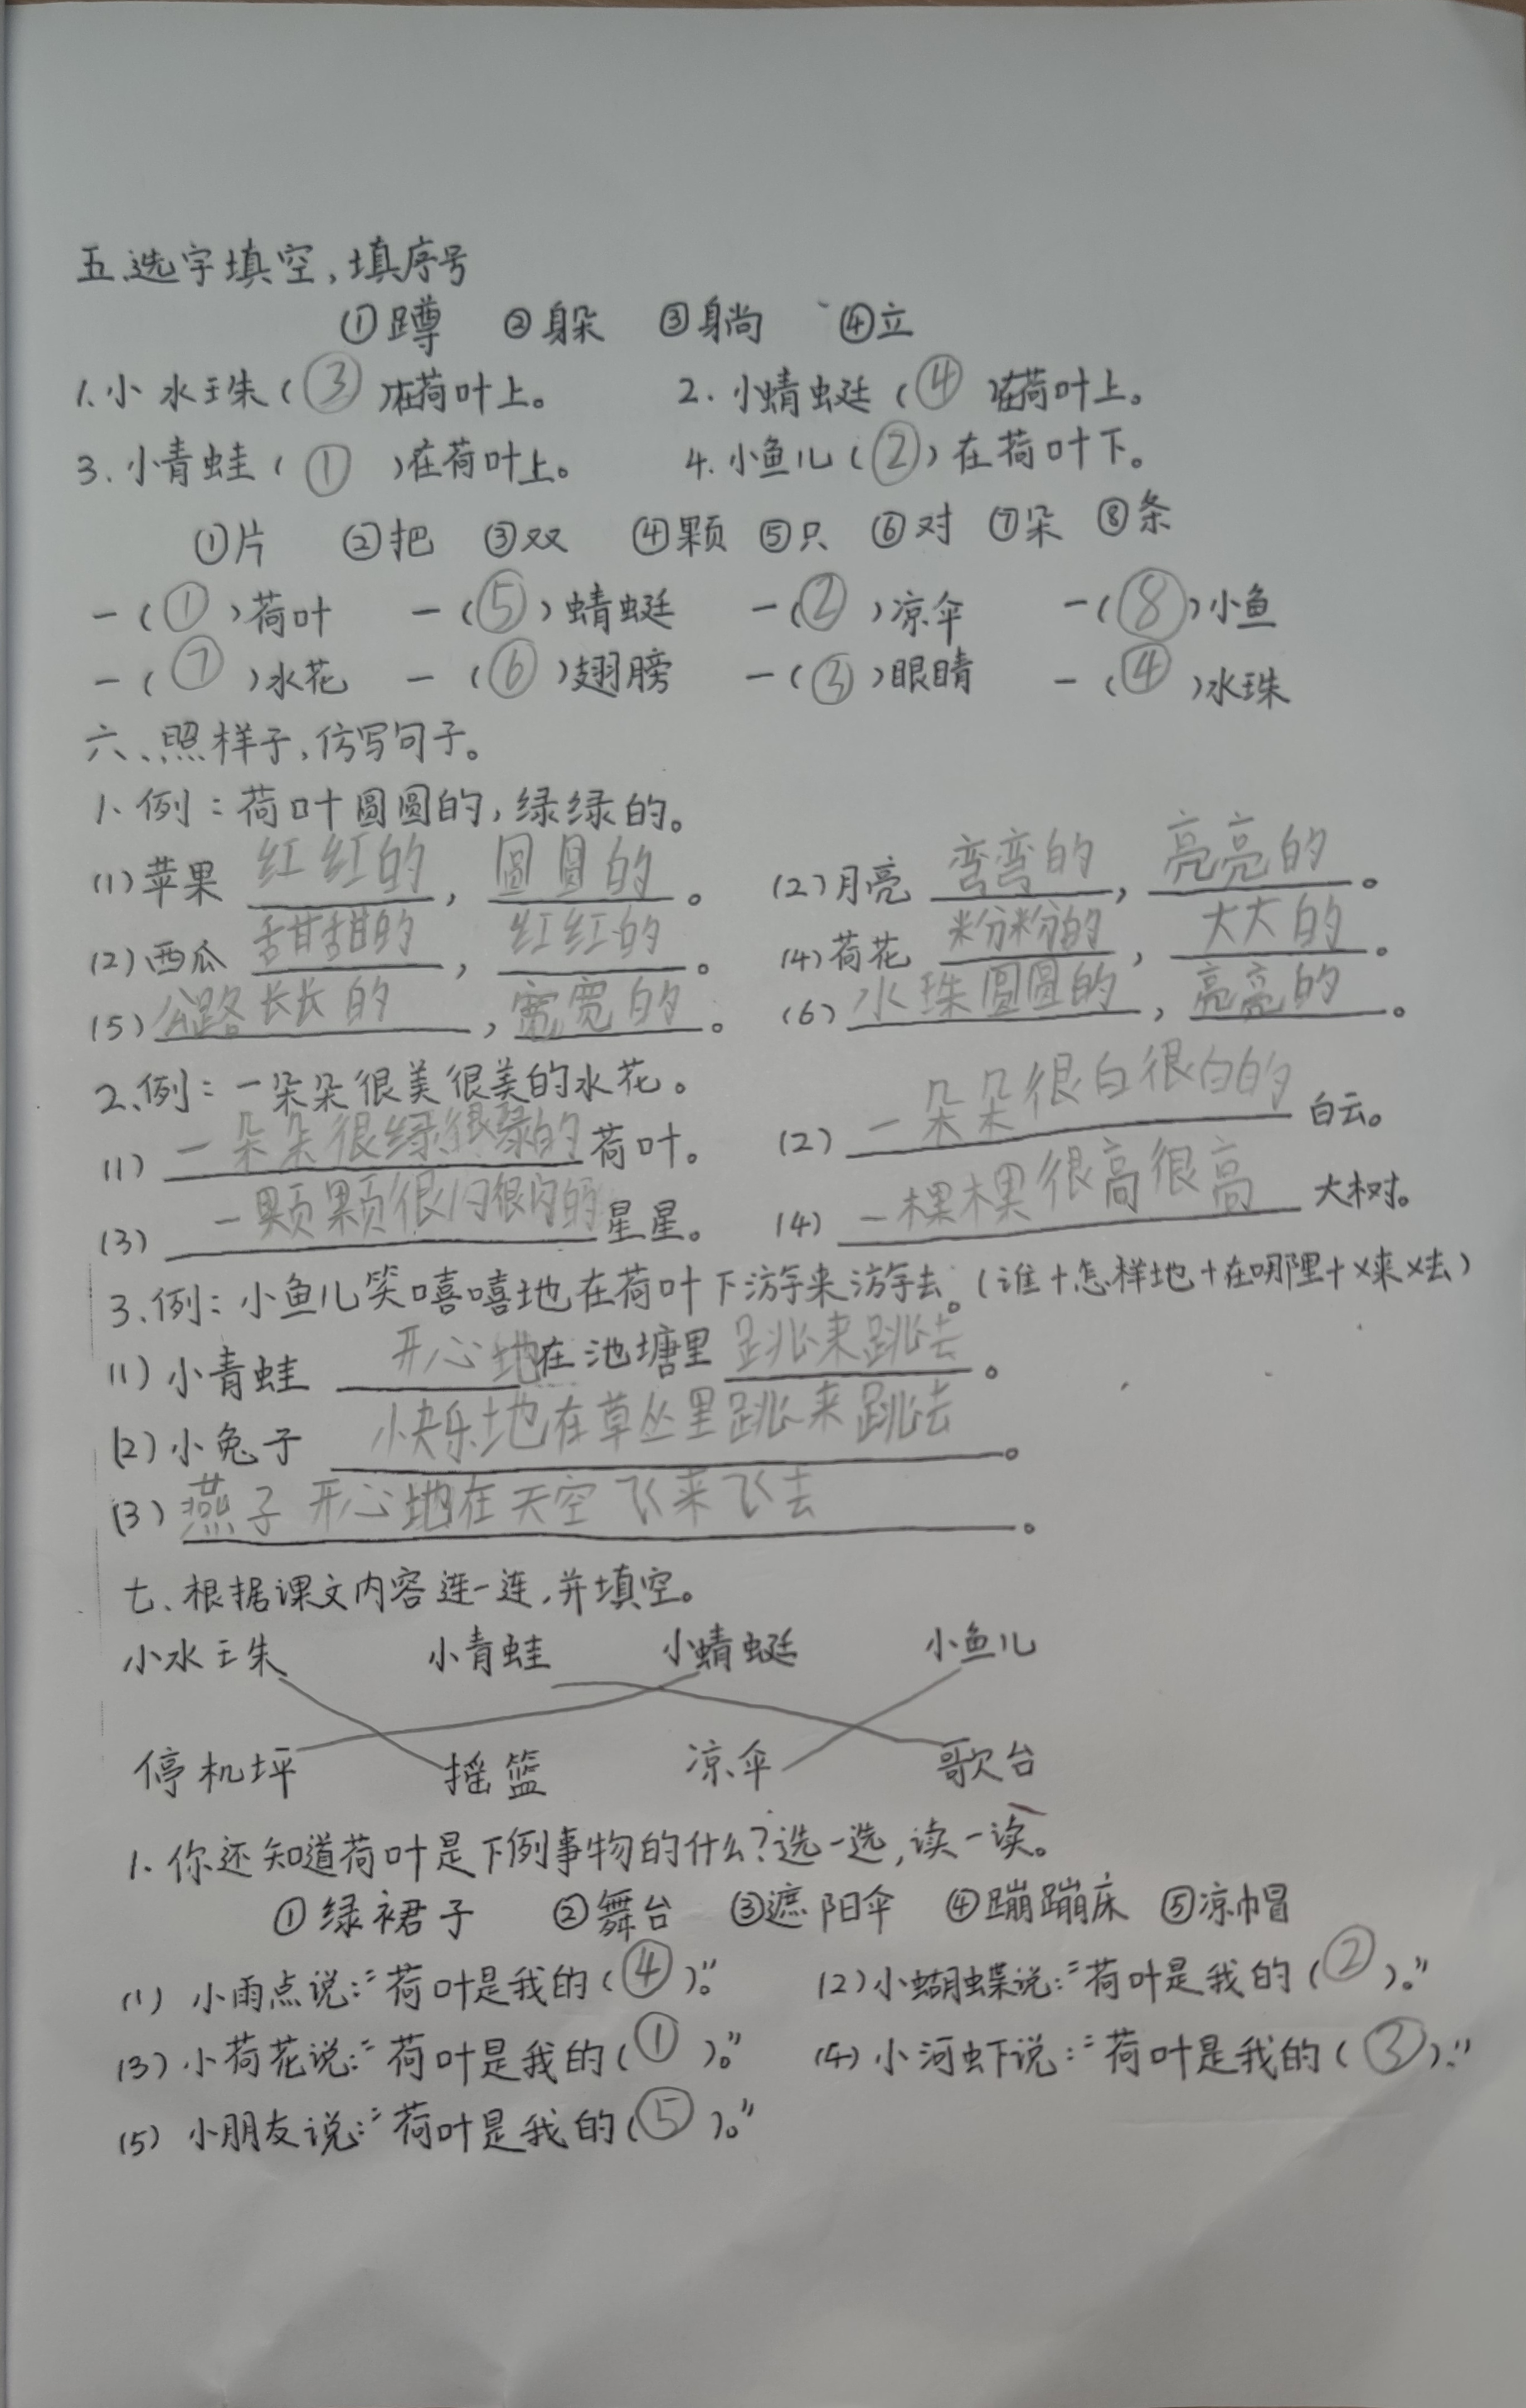 五、选字填空,填序号
①蹲 ②躲 ③躺 ④立
1.小水珠(③)在荷叶上。 2.小蜻蜓(④)在荷叶上。
3.小青蛙(①)在荷叶上。 4.小鱼儿(②)在荷叶下。
①片 ②把 ③双 ④颗 ⑤只 ⑥对 ⑦朵 ⑧条
一(①)荷叶 一(⑤)蜻蜓 一(②)凉伞 一(⑧)小鱼
一(⑦)水花 一(⑥)翅膀 一(③)眼睛 一(④)水珠
六、照样子,仿写句子。
1、例:荷叶圆圆的,绿绿的。
(1)苹果 红红的,圆圆的。 (2)月亮 弯弯的,亮亮的。
(2)西瓜 甜甜的,红红的。 (4)荷花 粉粉的,大大的。
(5)公路长长的,宽宽的。 (6)水珠圆圆的,亮亮的。
2、例:一朵朵很美很美的水花。
(1)一朵朵很绿很绿的荷叶。 (2)一朵朵很白很白的白云。
(3)一颗颗很闪很闪的星星。 (4)一棵棵很高很高大树。
3、例:小鱼儿笑嘻嘻地在荷叶下游来游去。(谁+怎样地+在哪里+×来×去)
(1)小青蛙 开心地在池塘里跳来跳去。
(2)小兔子 快乐地在草丛里跳来跳去。
(3)燕子开心地在天空飞来飞去。
七、根据课文内容连一连,并填空。
小水珠 小青蛙 小蜻蜓 小鱼儿
停机坪 摇篮 凉伞 歌台
1、你还知道荷叶是下例事物的什么?选一选,读一读。
①绿裙子 ②舞台 ③遮阳伞 ④蹦蹦床 ⑤凉帽
(1)小雨点说:“荷叶是我的(④)。” (2)小蝴蝶说:“荷叶是我的(②)。”
(3)小荷花说:“荷叶是我的(①)。” (4)小河虾说:“荷叶是我的(③)。”
(5)小朋友说:“荷叶是我的(⑤)。”